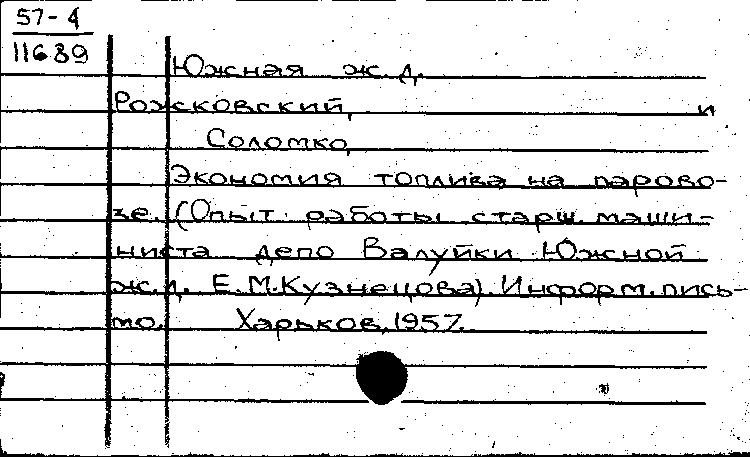 57-4
11689
Южная ж.д.
Рожсковский, и
Соломко,
Экономия топлива на парово-
зе. (Опыт работы старш. маши-
ниста депо Валуйки Южной
ж.д. Е.М.Кузнецова). Информ.пись-
мо. Харьков, 1957.